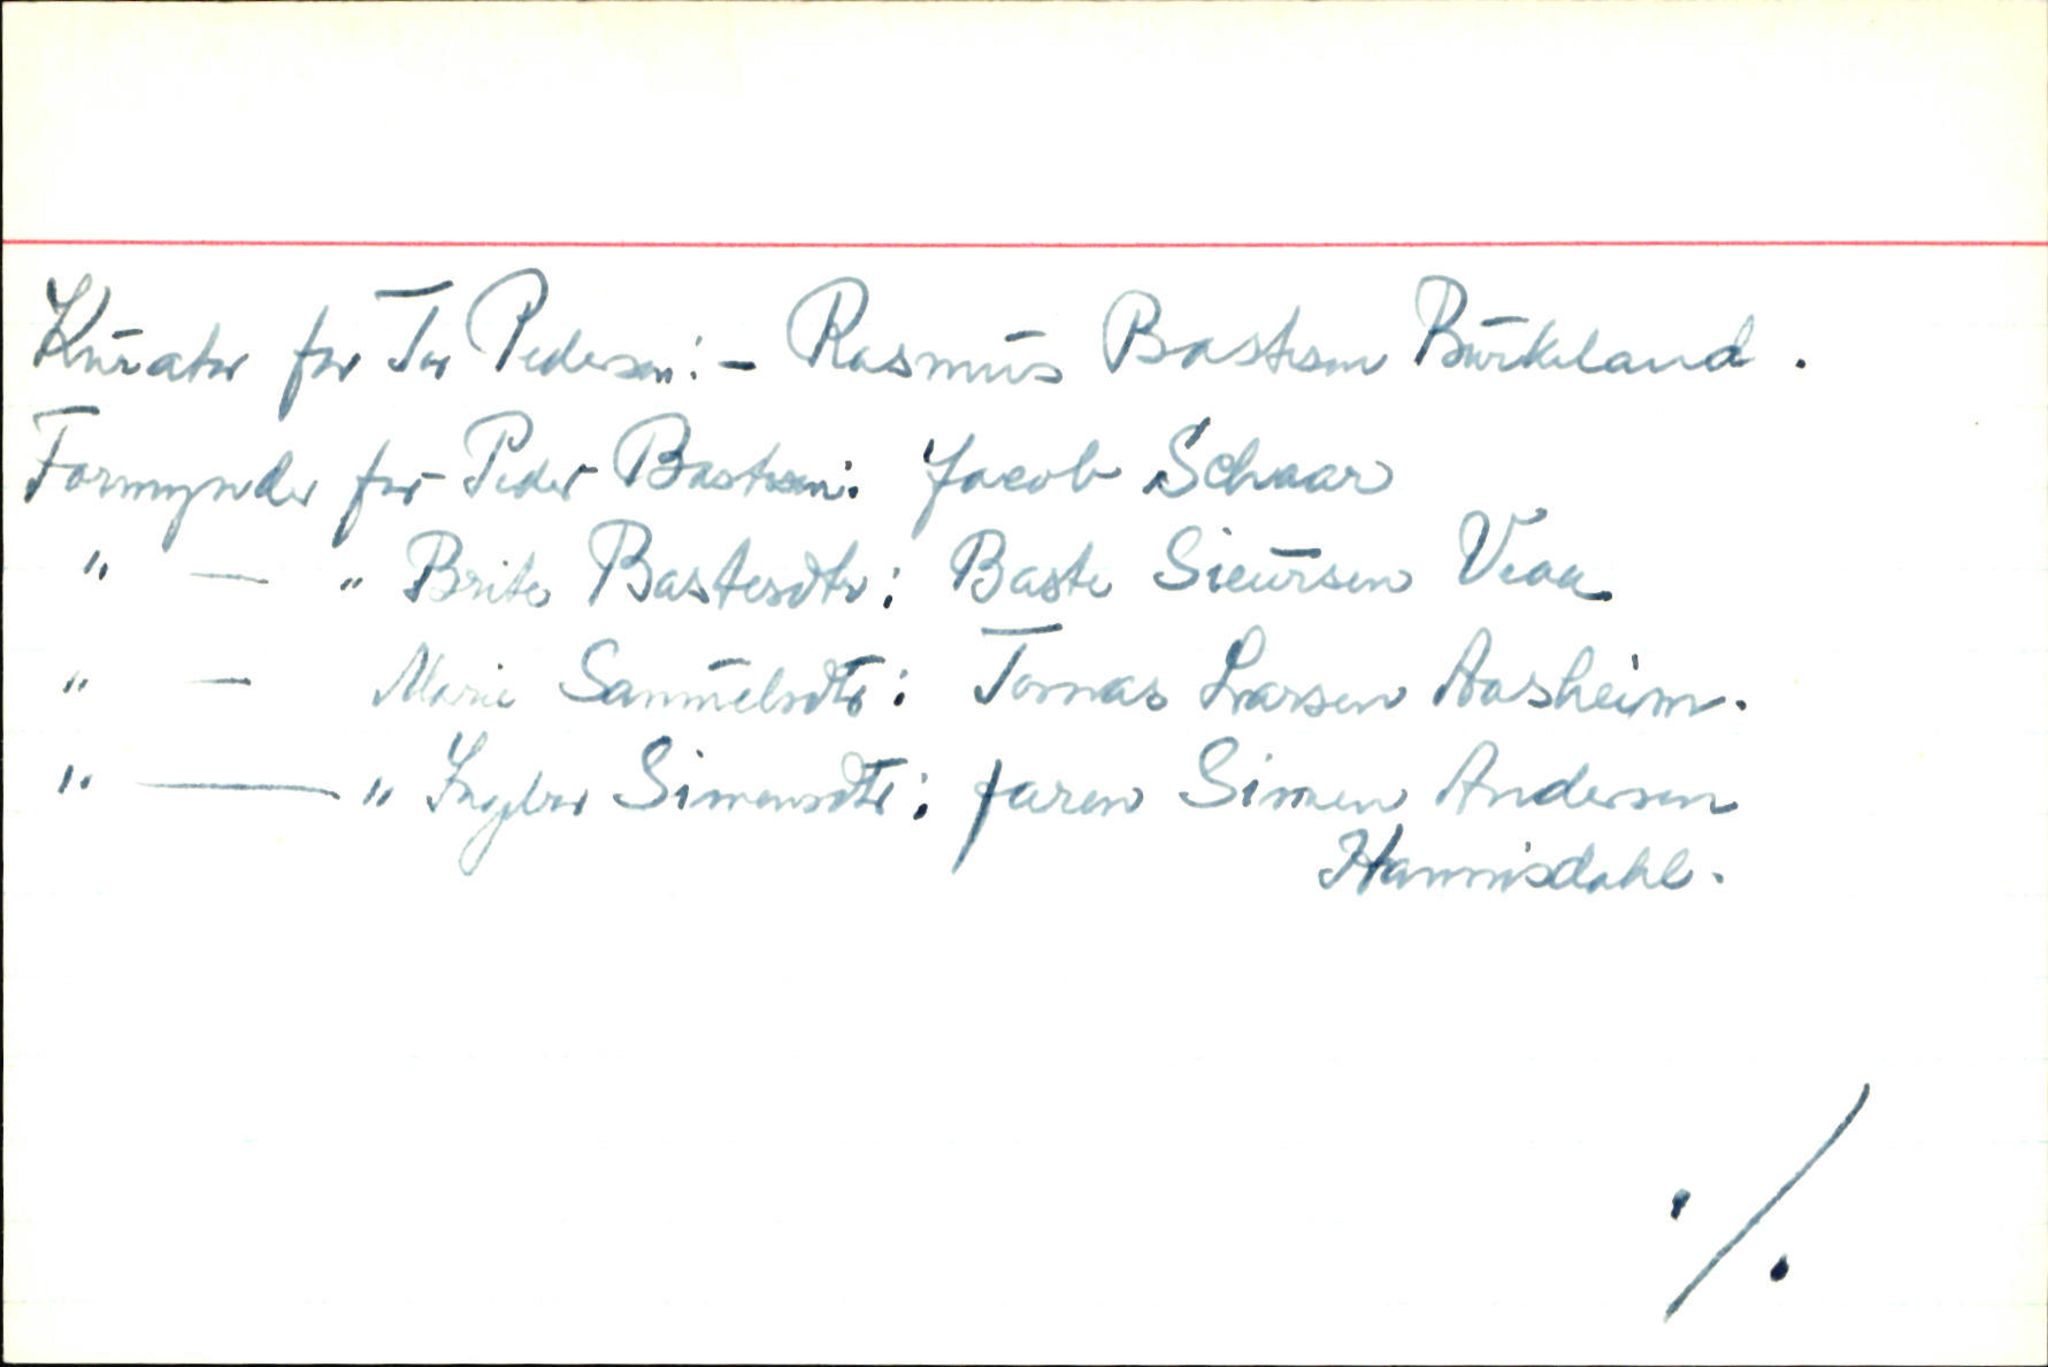 Kurator for Tor Pedersen: - Rasmus Bastesen Burkeland.
Formynder for Peder Bastesen: Jacob Schaar
" — " Brite Bastesdtr: Baste Sieursen Veaa.
" — Marie Samuelsdtr: Tomas Larsen Aasheim.
" — " Ingebor Simensdtr: faren Simen Andersen
Hannisdahl.
./.